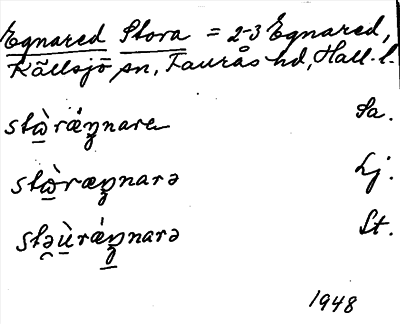 Egnared Stora = 2-3 Egnared,
Källsjö sn, Faurås hd, Hall. l.
stὼ̲rǽŋnare Sa.
stὼ̲ræŋnarə Lj.
stə̯ù̲rǽŋ̲narə St.
1948